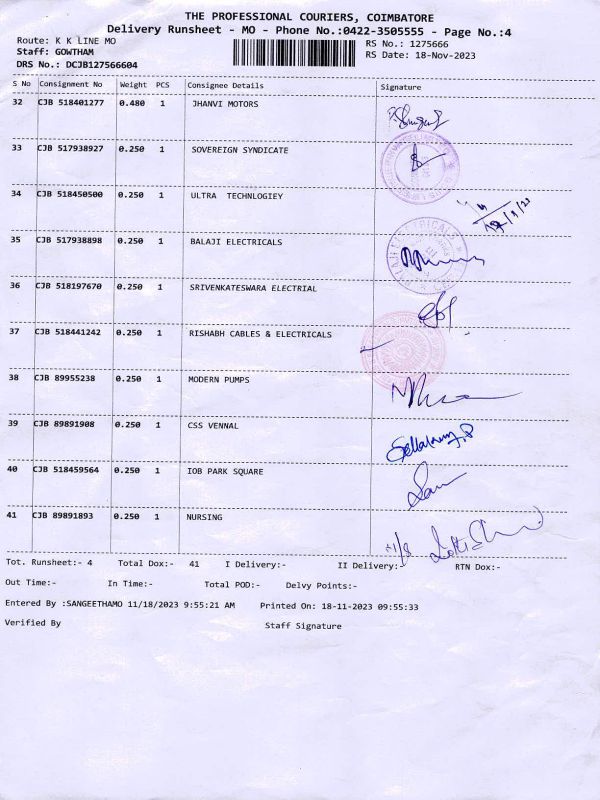 THE PROFESSIONAL COURIERS, COIMBATORE
Delivery Runsheet - MO - Phone No.:0422-3505555 - Page No.:4
Route: K K LINE MO
Staff: GOWTHAM
DRS No.: DCJB127566604
RS No.: 1275666
RS Date: 18-Nov-2023
S No Consignment No Weight PCS Consignee Details Signature
32 CJB 518401277 0.480 1 JHANVI MOTORS
33 CJB 517938927 0.250 1 SOVEREIGN SYNDICATE
34 CJB 518450500 0.250 1 ULTRA TECHNLOGIEY
35 CJB 517938898 0.250 1 BALAJI ELECTRICALS
36 CJB 518197670 0.250 1 SRIVENKATESWARA ELECTRIAL
37 CJB 518441242 0.250 1 RISHABH CABLES & ELECTRICALS
38 CJB 89955238 0.250 1 MODERN PUMPS
39 CJB 89891908 0.250 1 CSS VENNAL
40 CJB 518459564 0.250 1 IOB PARK SQUARE
41 CJB 89891893 0.250 1 NURSING
Tot. Runsheet:- 4 Total Dox:- 41 I Delivery:- II Delivery:- RTN Dox:-
Out Time:- In Time:- Total POD:- Delvy Points:-
Entered By :SANGEETHAMO 11/18/2023 9:55:21 AM Printed On: 18-11-2023 09:55:33
Verified By Staff Signature